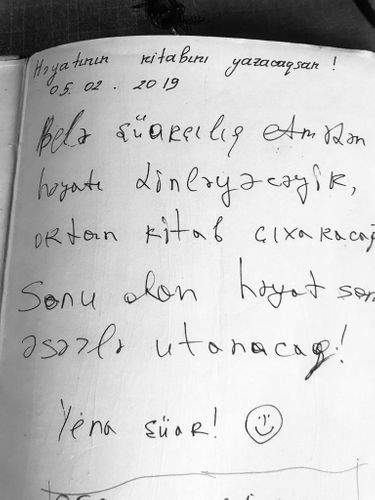 Həyatının kitabını yazacaqsan!
05.02.2019
Belə şüarçılıq etmədən
həyatı dinləyəcəyik,
oktan kitab çıxaracağ
Sonu olan həyat son
əsərlə utanacaq!
Yenə şüar! ☺